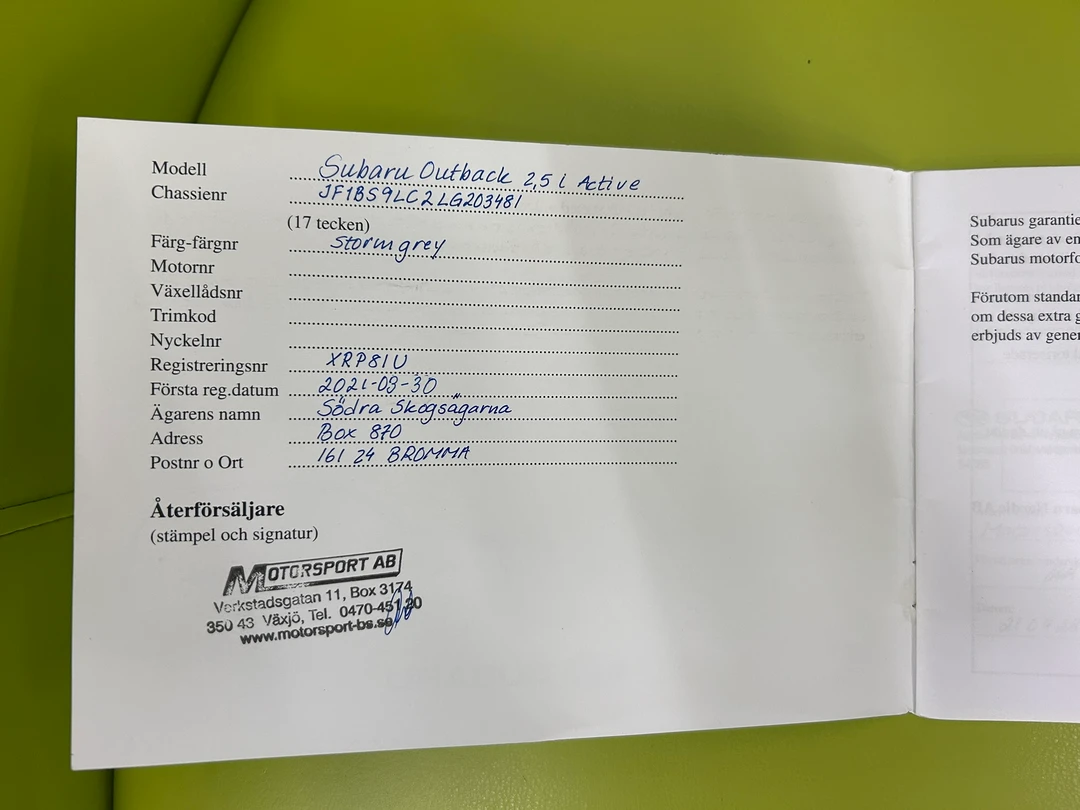 Modell Subaru Outback 2,5 i Active
Chassienr JF1BS9LC2LG203481
(17 tecken)
Färg-färgnr Stormgrey
Motornr
Växellådsnr
Trimkod
Nyckelnr
Registreringsnr XRP81U
Första reg.datum 2021-09-30
Ägarens namn Södra Skogsägarna
Adress Box 870
Postnr o Ort 161 24 BROMMA
Återförsäljare
(stämpel och signatur)
MOTORSPORT AB
Verkstadsgatan 11, Box 3174
350 43 Växjö, Tel. 0470-451 20
www.motorsport-bs.se
Subarus garantie
Som ägare av en
Subarus motorfo
Förutom standar
om dessa extra g
erbjuds av gener